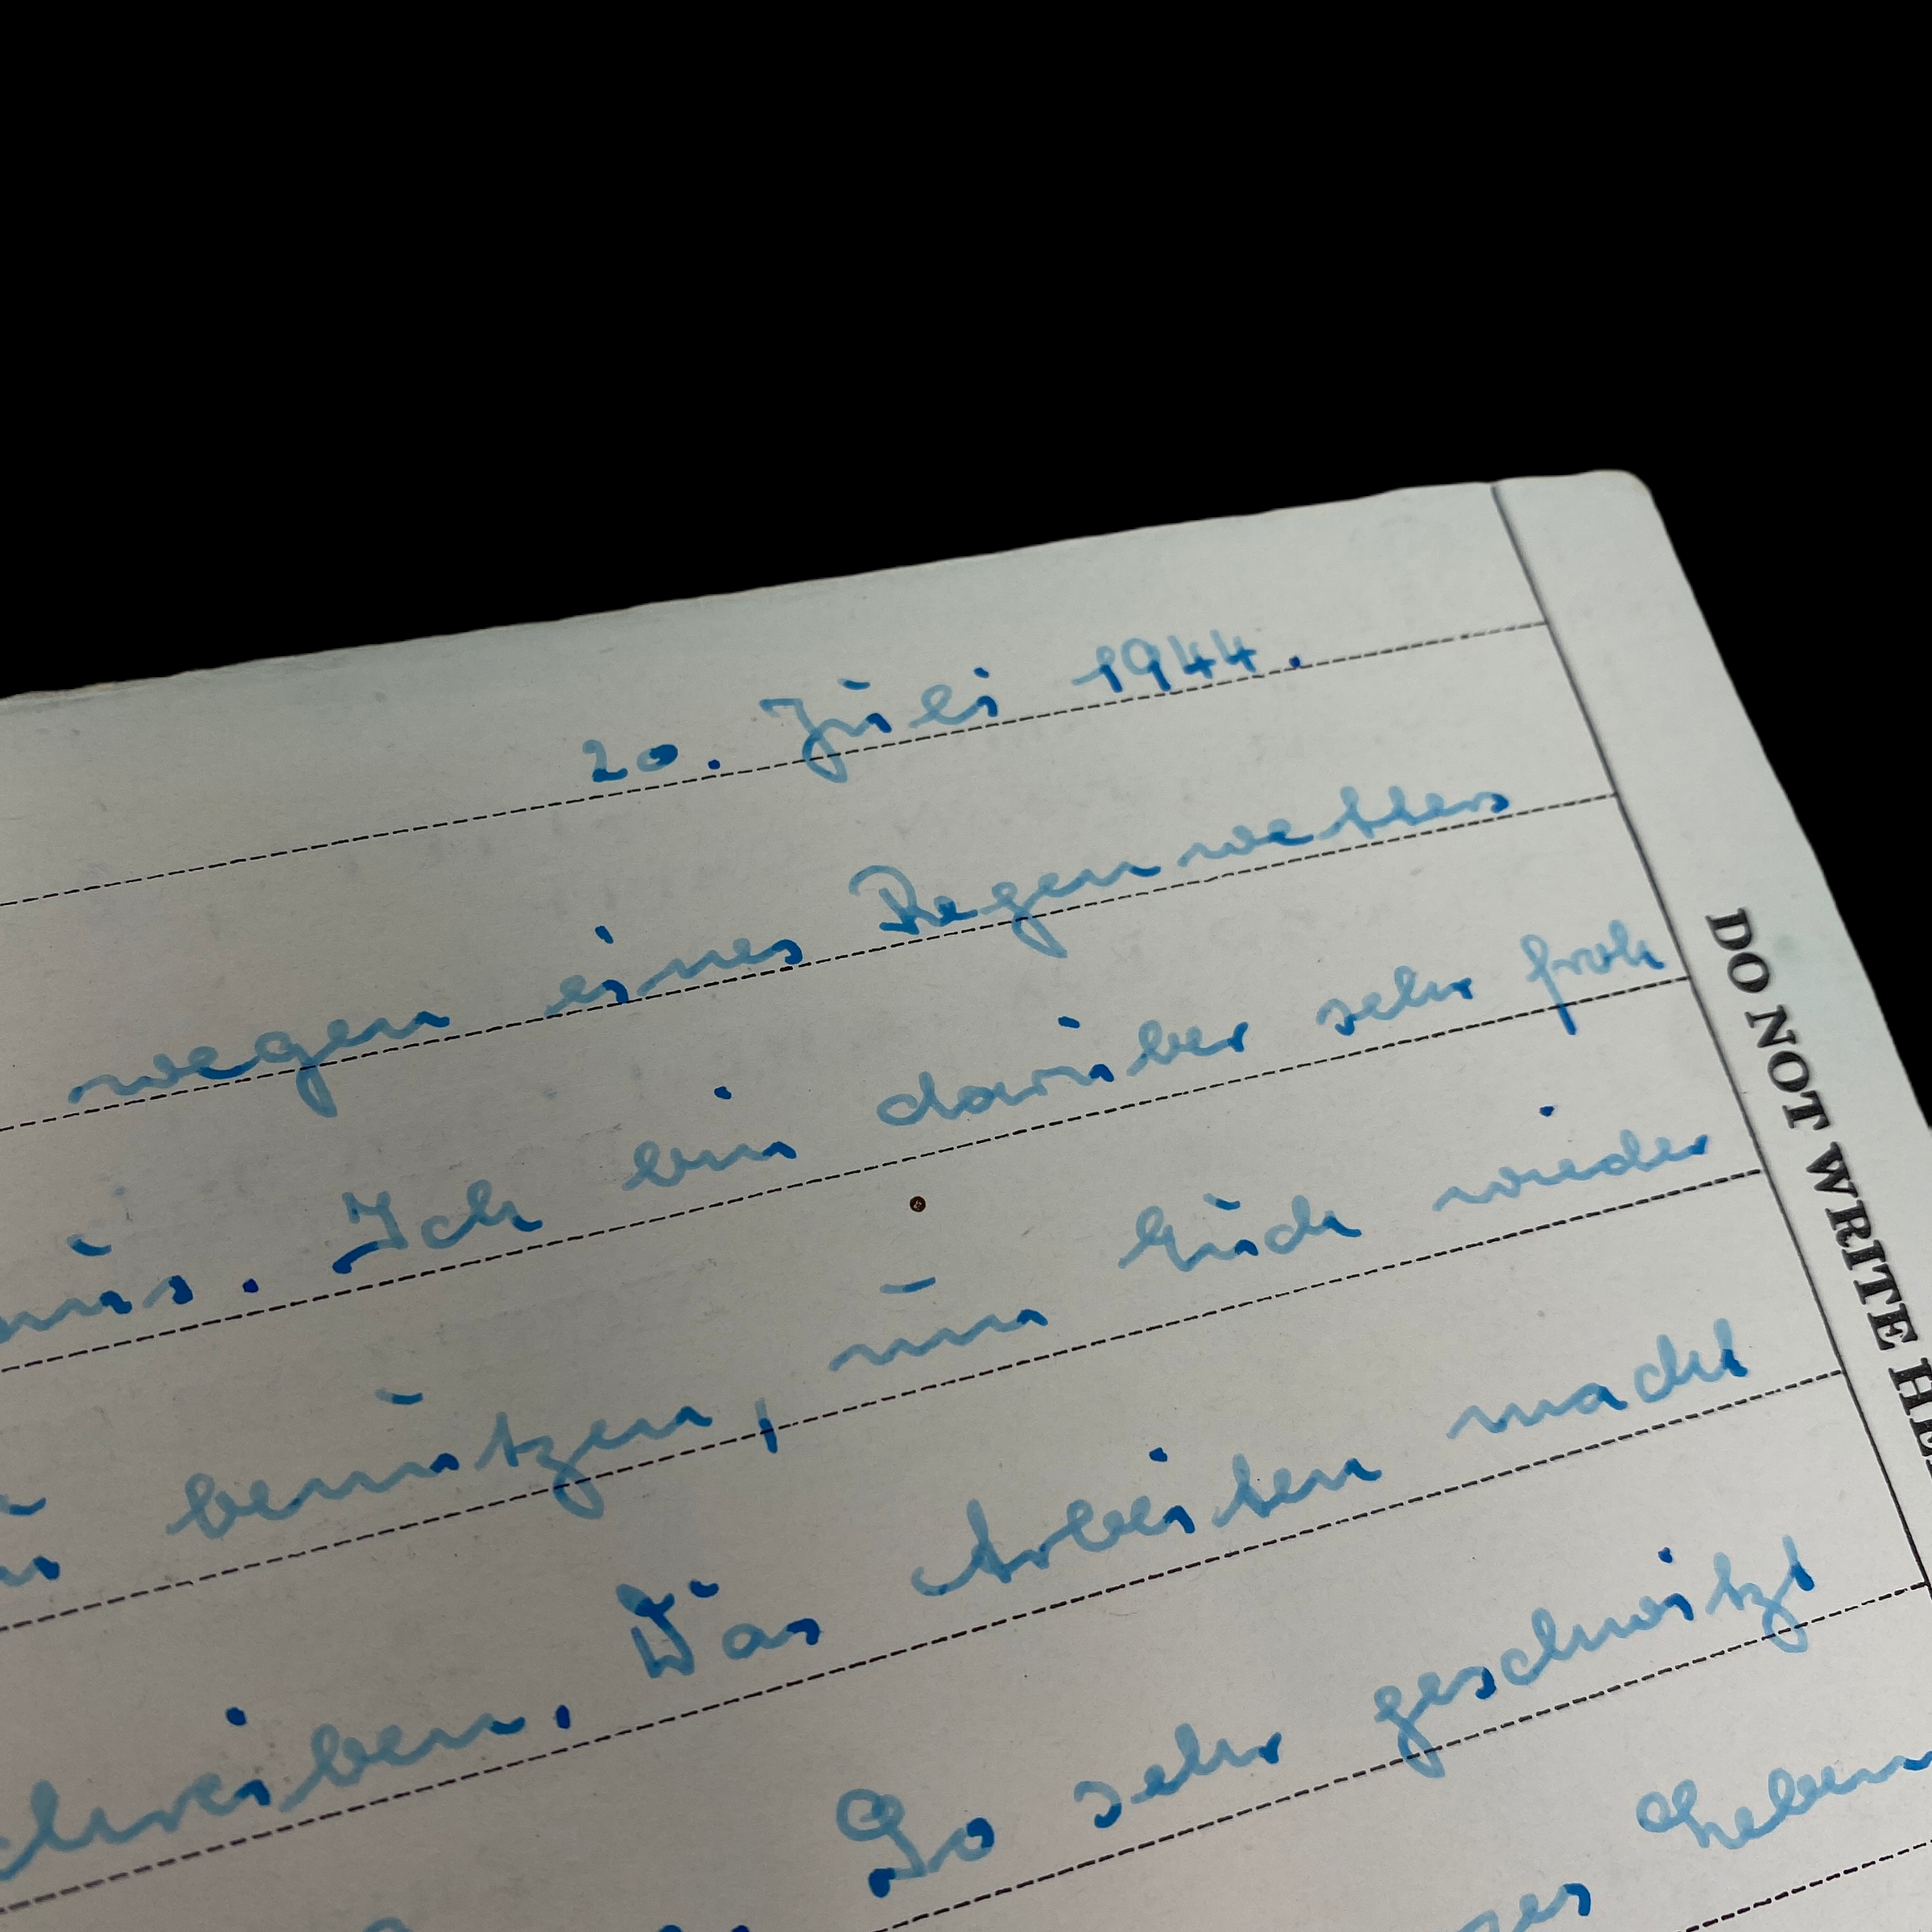 20. Juli 1944.
wegen eines Regenwetters
Ich bin darüber sehr froh
benützen, um Euch wieder
Das Arbeiten macht
So sehr geschwitzt
Leben
DO NOT WRITE HE